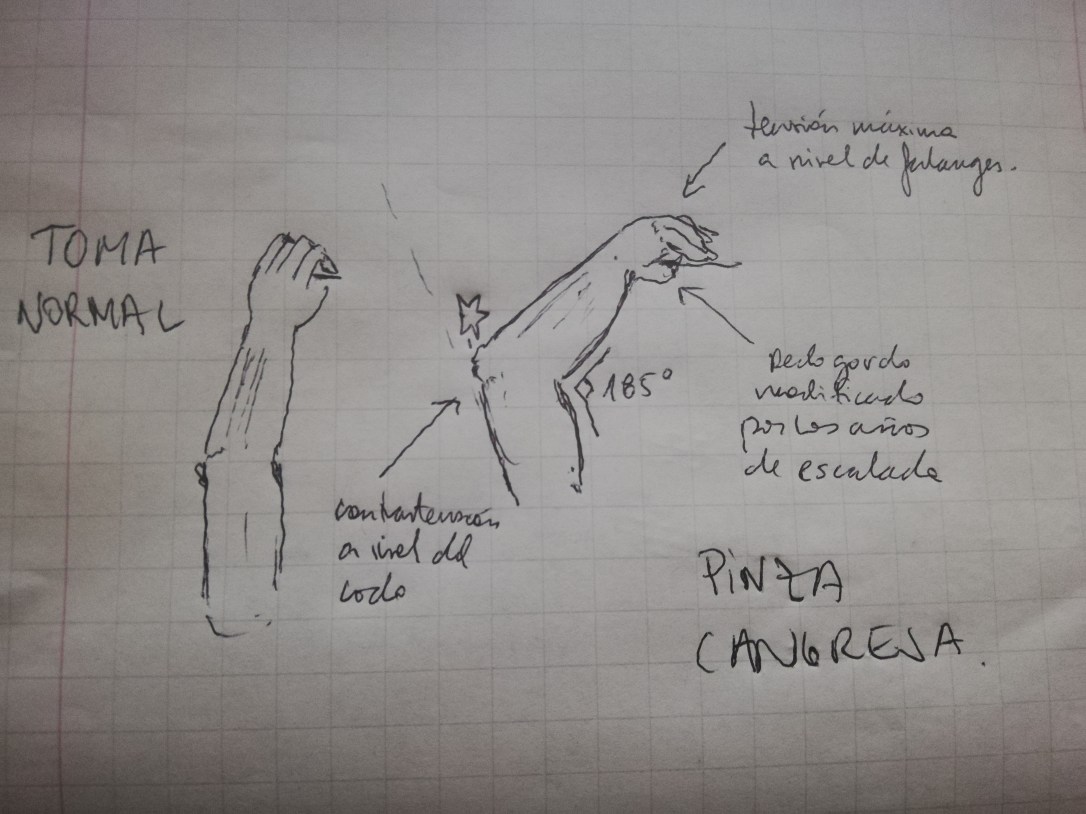 TOMA
NORMAL
tensión máxima
a nivel de falanges.
185°
Dedo gordo
modificado
por los años
de escalada
contratensión
a nivel del
codo
PINZA
CANGREJA.